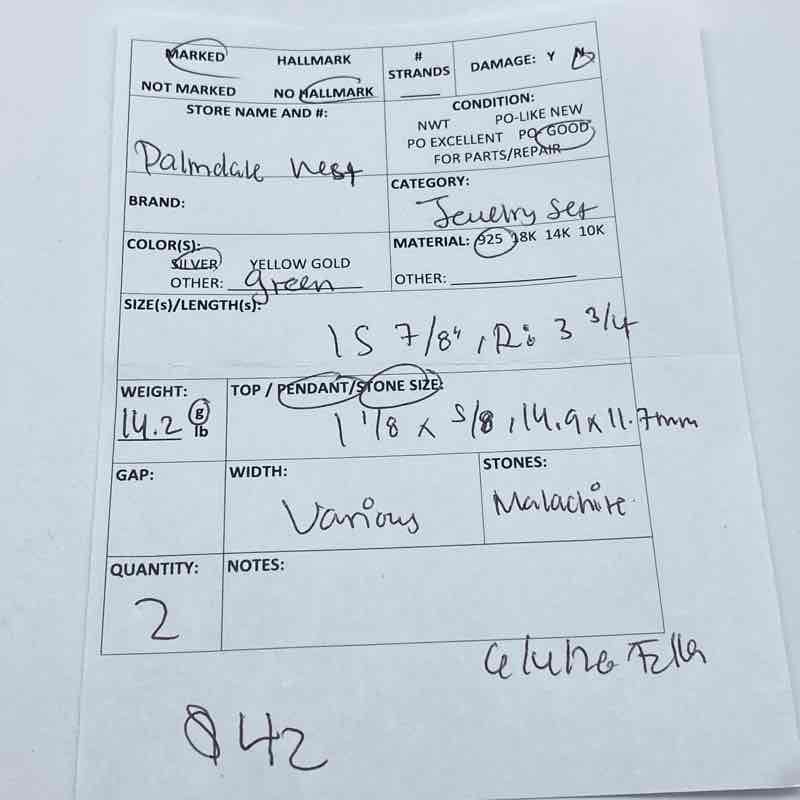 MARKED HALLMARK
NOT MARKED NO HALLMARK
# STRANDS
DAMAGE: Y N
STORE NAME AND #:
Palmdale West
CONDITION:
NWT PO-LIKE NEW
PO EXCELLENT PO-GOOD
FOR PARTS/REPAIR
BRAND:
CATEGORY:
Jewelry Set
COLOR(S):
SILVER YELLOW GOLD
OTHER: green
MATERIAL: 925 18K 14K 10K
OTHER:
SIZE(s)/LENGTH(s):
15 7/8", R: 3 3/4
WEIGHT:
14.2 g
lb
TOP / PENDANT/STONE SIZE:
1 1/8 x 5/8, 14.9 x 11.7mm
GAP:
WIDTH:
Various
STONES:
Malachite
QUANTITY:
2
NOTES:
$42